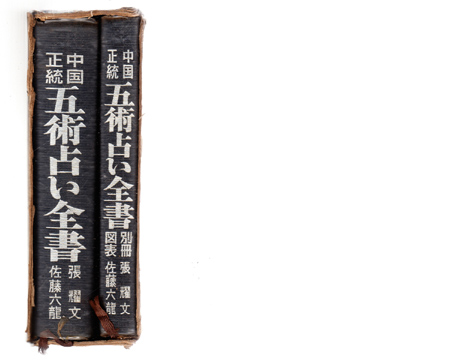 中国
正統
五術占い全書
張耀文
佐藤六龍
中国
正統
五術占い全書
別冊
図表
張耀文
佐藤六龍